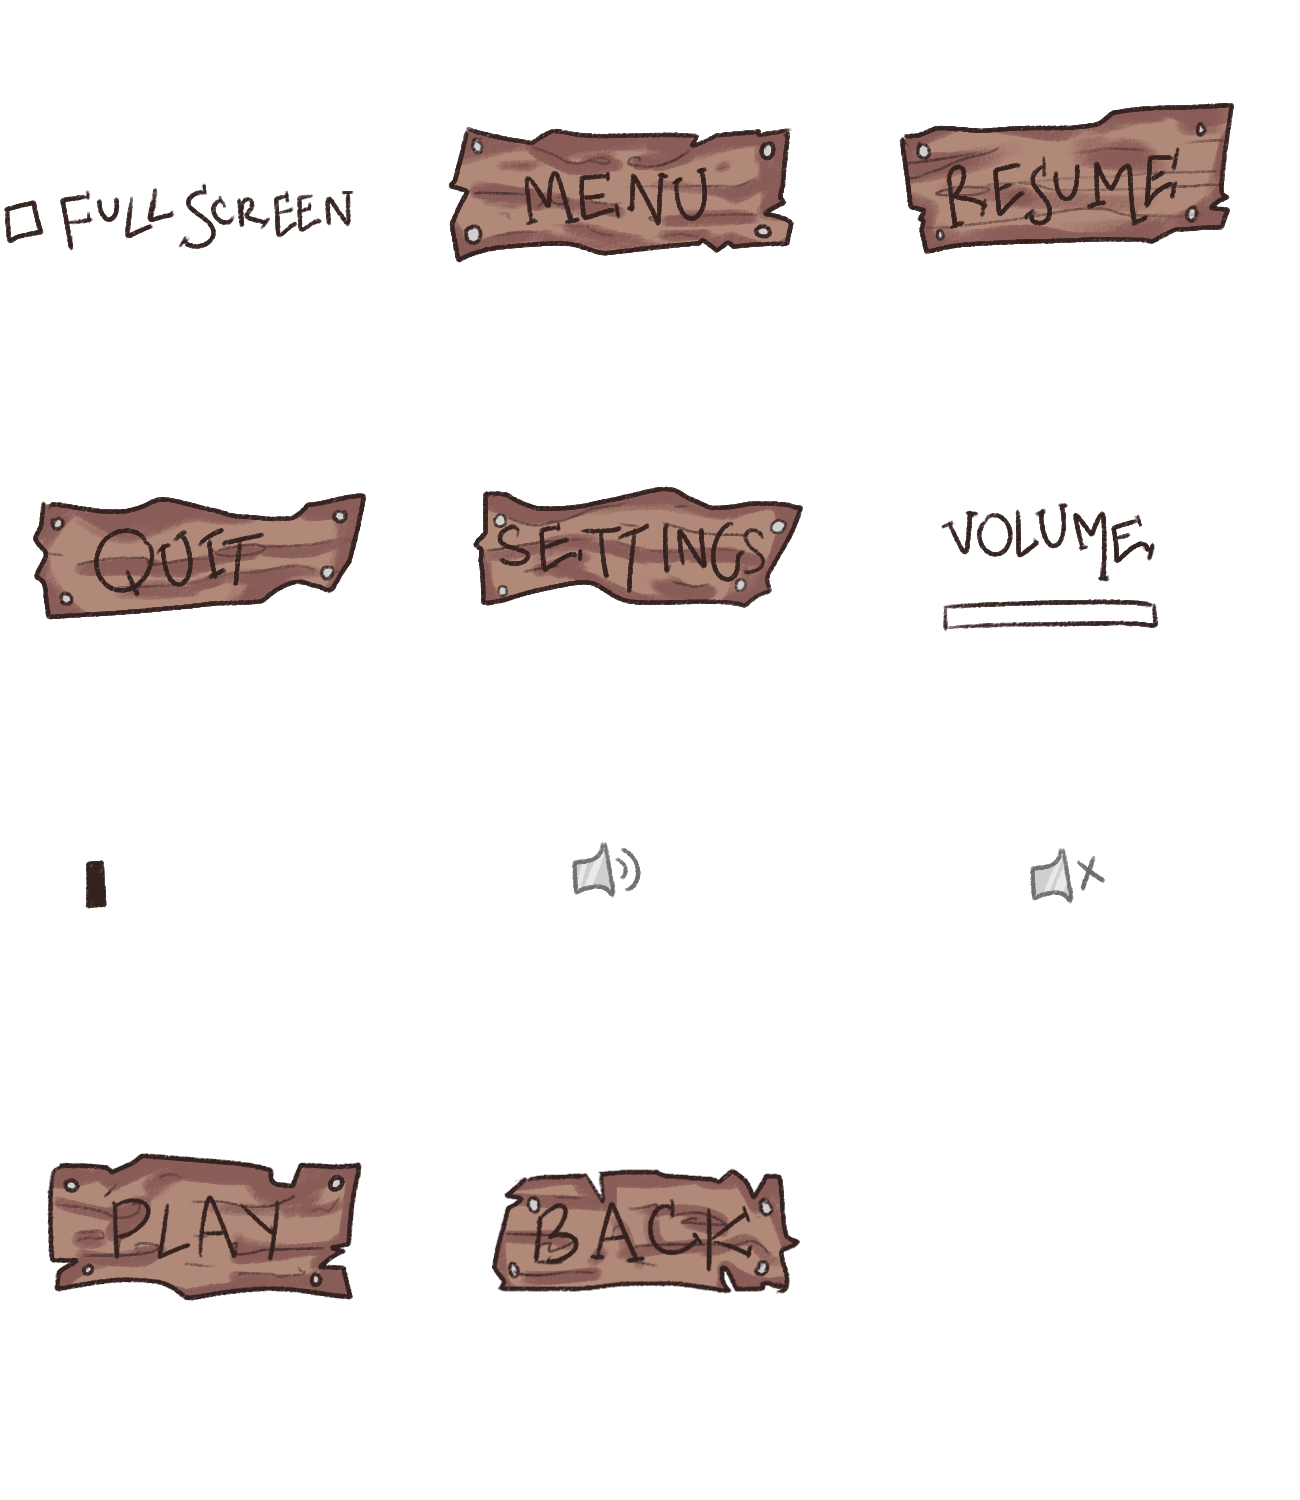 FULLSCREEN
MENU
RESUME
QUIT
SETTINGS
VOLUME
PLAY
BACK